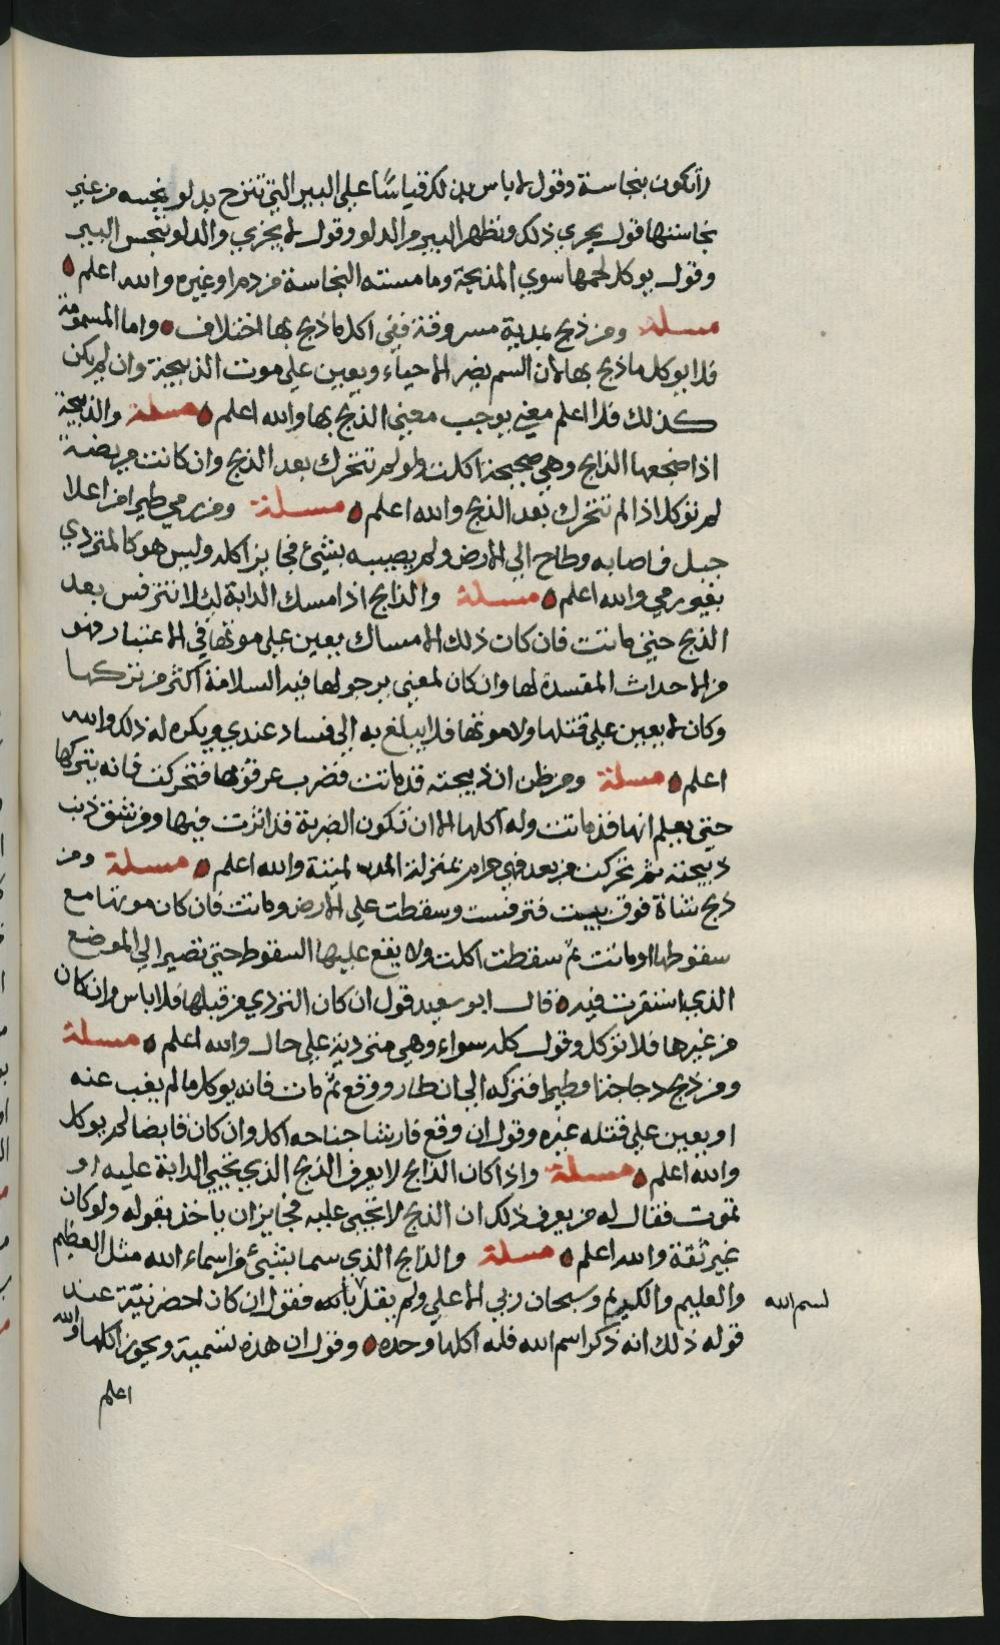 ان تكون بنجاسة وقول لا باس بذلك قياسًا على البير التي تنزح بدلو نجسه من غير
نجاستها قول يجزي ذلك وتطهر البير والدلو وقول لا يجزي والدلو ينجس البير
وقول يوكل لحمها سوي المذبحة وما مسته النجاسة من دم او غيره والله اعلم
مسلة ومن ذبح بمدية مسروقة ففي اكل ما ذبح بها اختلاف واما المسمومة
فلا يوكل ما ذبح بها لان السم يضر الاحياء ويعين على موت الذبيحة وان لم يكن
كذلك فلا اعلم معني يوجب معني الذبح بها والله اعلم مسلة والذبيحة
اذا ضجعها الذابح وهي صحيحة اكلت ولو لم تتحرك بعد الذبح وان كانت مريضة
لم توكل اذا لم تتحرك بعد الذبح والله اعلم مسلة ومن رمي طيرا من اعلا
جبل فاصابه وطاح الي الارض ولم يصيبه بشيئ فجايز اكله وليس هو كالمتردي
بغير رمي والله اعلم مسلة والذابح اذا مسك الدابة ليلا تترفس بعد
الذبح حتي ماتت فان كان ذلك الامساك يعين علي موتها في الاعتبار فهو
من الاحداث المفسدة لها وان كان لمعني يرجو لها فيه السلامة اكثر من تركها
وكان لا يعين علي قتلها ولا موتها فلا يبلغ به الي فساد عندي ويكره له ذلك والله
اعلم مسلة ومن ظن ان ذبيحته قد ماتت فضرب عرقوبها فتحركت فانه يتركها
حتي يعلم انها قد ماتت وله اكلها الا ان تكون الضربة قد اثرت فيها ومن شق ذنب
ذبيحته ثم تحركت من بعد فهي حرام بمنزلة الميتة والله اعلم مسلة ومن
ذبح شاة فوق بيت فترفست وسقطت علي الارض وماتت فان كان موتها مع
سقوطها او ماتت ثم سقطت اكلت ولا يقع عليها السقوط حتي تصير الي الموضع
الذي استقرت فيه قال ابو سعيد قول ان كان التردي من قبلها فلا باس وان كان
من غيرها فلا توكل وقول كله سواء وهي متردية علي حال والله اعلم مسلة
ومن ذبح دجاجة او طيرا فتركه الي ان طار ووقع ثم مات فانه يوكل ما لم يغب عنه
او يعين علي قتله غيره وقول ان وقع فارشا جناحه اكل وان كان قابضا لم يوكل
والله اعلم مسلة واذا كان الذابح لا يعرف الذبح الذي تحيي الدابة عليه او
تموت فقال له من يعرف ذلك ان الذبح لا تحيي عليه فجايز ان ياخذ بقوله ولو كان
غير ثقة والله اعلم مسلة والذابح الذي سما بشيئ من اسماء الله مثل العظيم
والعليم والكريم وسبحان ربي الاعلي ولم يقل بالله فقول ان كان احضر نيته عند
بسم الله
قوله ذلك انه ذكر اسم الله فله اكلها وحده وقول ان هذه تسمية ويجوز اكلها والله
اعلم